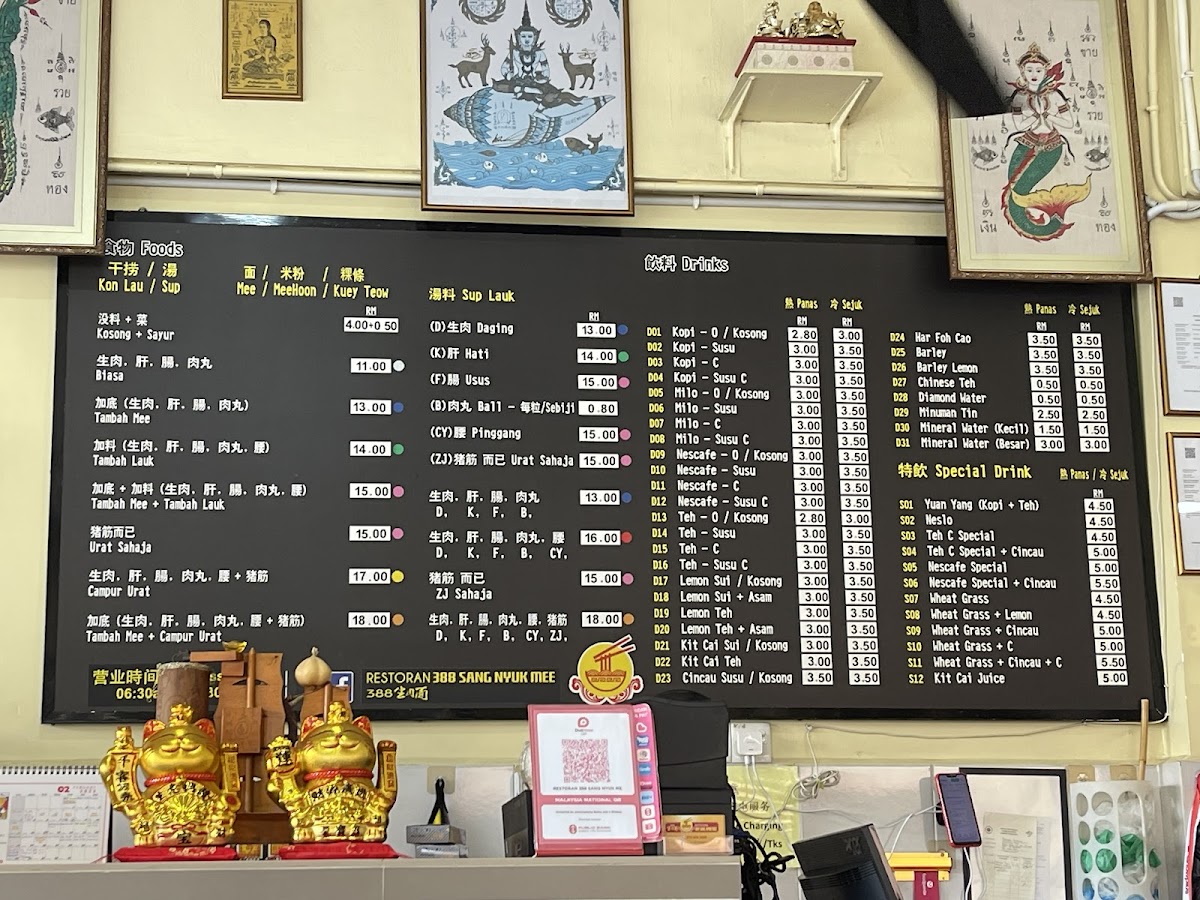 食物 Foods
干捞 / 湯
Kon Lau / Sup
面 / 米粉 / 粿條
Mee / MeeHoon / Kuey Teow
RM
没料 + 菜
Kosong + Sayur
4.00+0 50
生肉. 肝. 腸. 肉丸
Biasa
11.00
加底 (生肉. 肝. 腸. 肉丸)
Tambah Mee
13.00
加料 (生肉. 肝. 腸. 肉丸. 腰)
Tambah Lauk
14.00
加底 + 加料 (生肉. 肝. 腸. 肉丸. 腰)
Tambah Mee + Tambah Lauk
15.00
猪筋而已
Urat Sahaja
15.00
生肉. 肝. 腸. 肉丸. 腰 + 猪筋
Campur Urat
17.00
加底 (生肉. 肝. 腸. 肉丸. 腰 + 猪筋)
Tambah Mee + Campur Urat
18.00
营业时间
06:30
RESTORAN 388 SANG NYUK MEE
388 生肉面
湯料 Sup Lauk
RM
(D)生肉 Daging 13.00
(K)肝 Hati 14.00
(F)腸 Usus 15.00
(B)肉丸 Ball - 每粒/Sebiji 0.80
(CY)腰 Pinggang 15.00
(ZJ)猪筋 而已 Urat Sahaja 15.00
生肉. 肝. 腸. 肉丸
D, K, F, B,
13.00
生肉. 肝. 腸. 肉丸. 腰
D, K, F, B, CY,
16.00
猪筋 而已
ZJ Sahaja
15.00
生肉. 肝. 腸. 肉丸. 腰. 猪筋
D, K, F, B, CY, ZJ,
18.00
飲料 Drinks
熱 Panas 冷 Sejuk
RM RM
D01 Kopi - O / Kosong 2.80 3.00
D02 Kopi - Susu 3.00 3.50
D03 Kopi - C 3.00 3.50
D04 Kopi - Susu C 3.00 3.50
D05 Milo - O / Kosong 3.00 3.50
D06 Milo - Susu 3.00 3.50
D07 Milo - C 3.00 3.50
D08 Milo - Susu C 3.00 3.50
D09 Nescafe - O / Kosong 3.00 3.50
D10 Nescafe - Susu 3.00 3.50
D11 Nescafe - C 3.00 3.50
D12 Nescafe - Susu C 3.00 3.50
D13 Teh - O / Kosong 2.80 3.00
D14 Teh - Susu 3.00 3.50
D15 Teh - C 3.00 3.50
D16 Teh - Susu C 3.00 3.50
D17 Lemon Sui / Kosong 3.00 3.50
D18 Lemon Sui + Asam 3.00 3.50
D19 Lemon Teh 3.00 3.50
D20 Lemon Teh + Asam 3.00 3.50
D21 Kit Cai Sui / Kosong 3.00 3.50
D22 Kit Cai Teh 3.00 3.50
D23 Cincau Susu / Kosong 3.50 3.50
熱 Panas 冷 Sejuk
RM RM
D24 Har Foh Cao 3.50 3.50
D25 Barley 3.50 3.50
D26 Barley Lemon 3.50 3.50
D27 Chinese Teh 0.50 0.50
D28 Diamond Water 0.50 0.50
D29 Minuman Tin 2.50 2.50
D30 Mineral Water (Kecil) 1.50 1.50
D31 Mineral Water (Besar) 3.00 3.00
特飲 Special Drink
熱 Panas / 冷 Sejuk
RM
S01 Yuan Yang (Kopi + Teh) 4.50
S02 Neslo 4.50
S03 Teh C Special 4.50
S04 Teh C Special + Cincau 5.00
S05 Nescafe Special 5.00
S06 Nescafe Special + Cincau 5.50
S07 Wheat Grass 4.50
S08 Wheat Grass + Lemon 4.50
S09 Wheat Grass + Cincau 5.00
S10 Wheat Grass + C 5.00
S11 Wheat Grass + Cincau + C 5.50
S12 Kit Cai Juice 5.00
รวย
ทอง
ขาย
รวย
เงิน
ทอง
02
RESTORAN 388 SANG NYUK MEE
MALAYSIA NATIONAL QR
PUBLIC BANK
Charging
/Tks